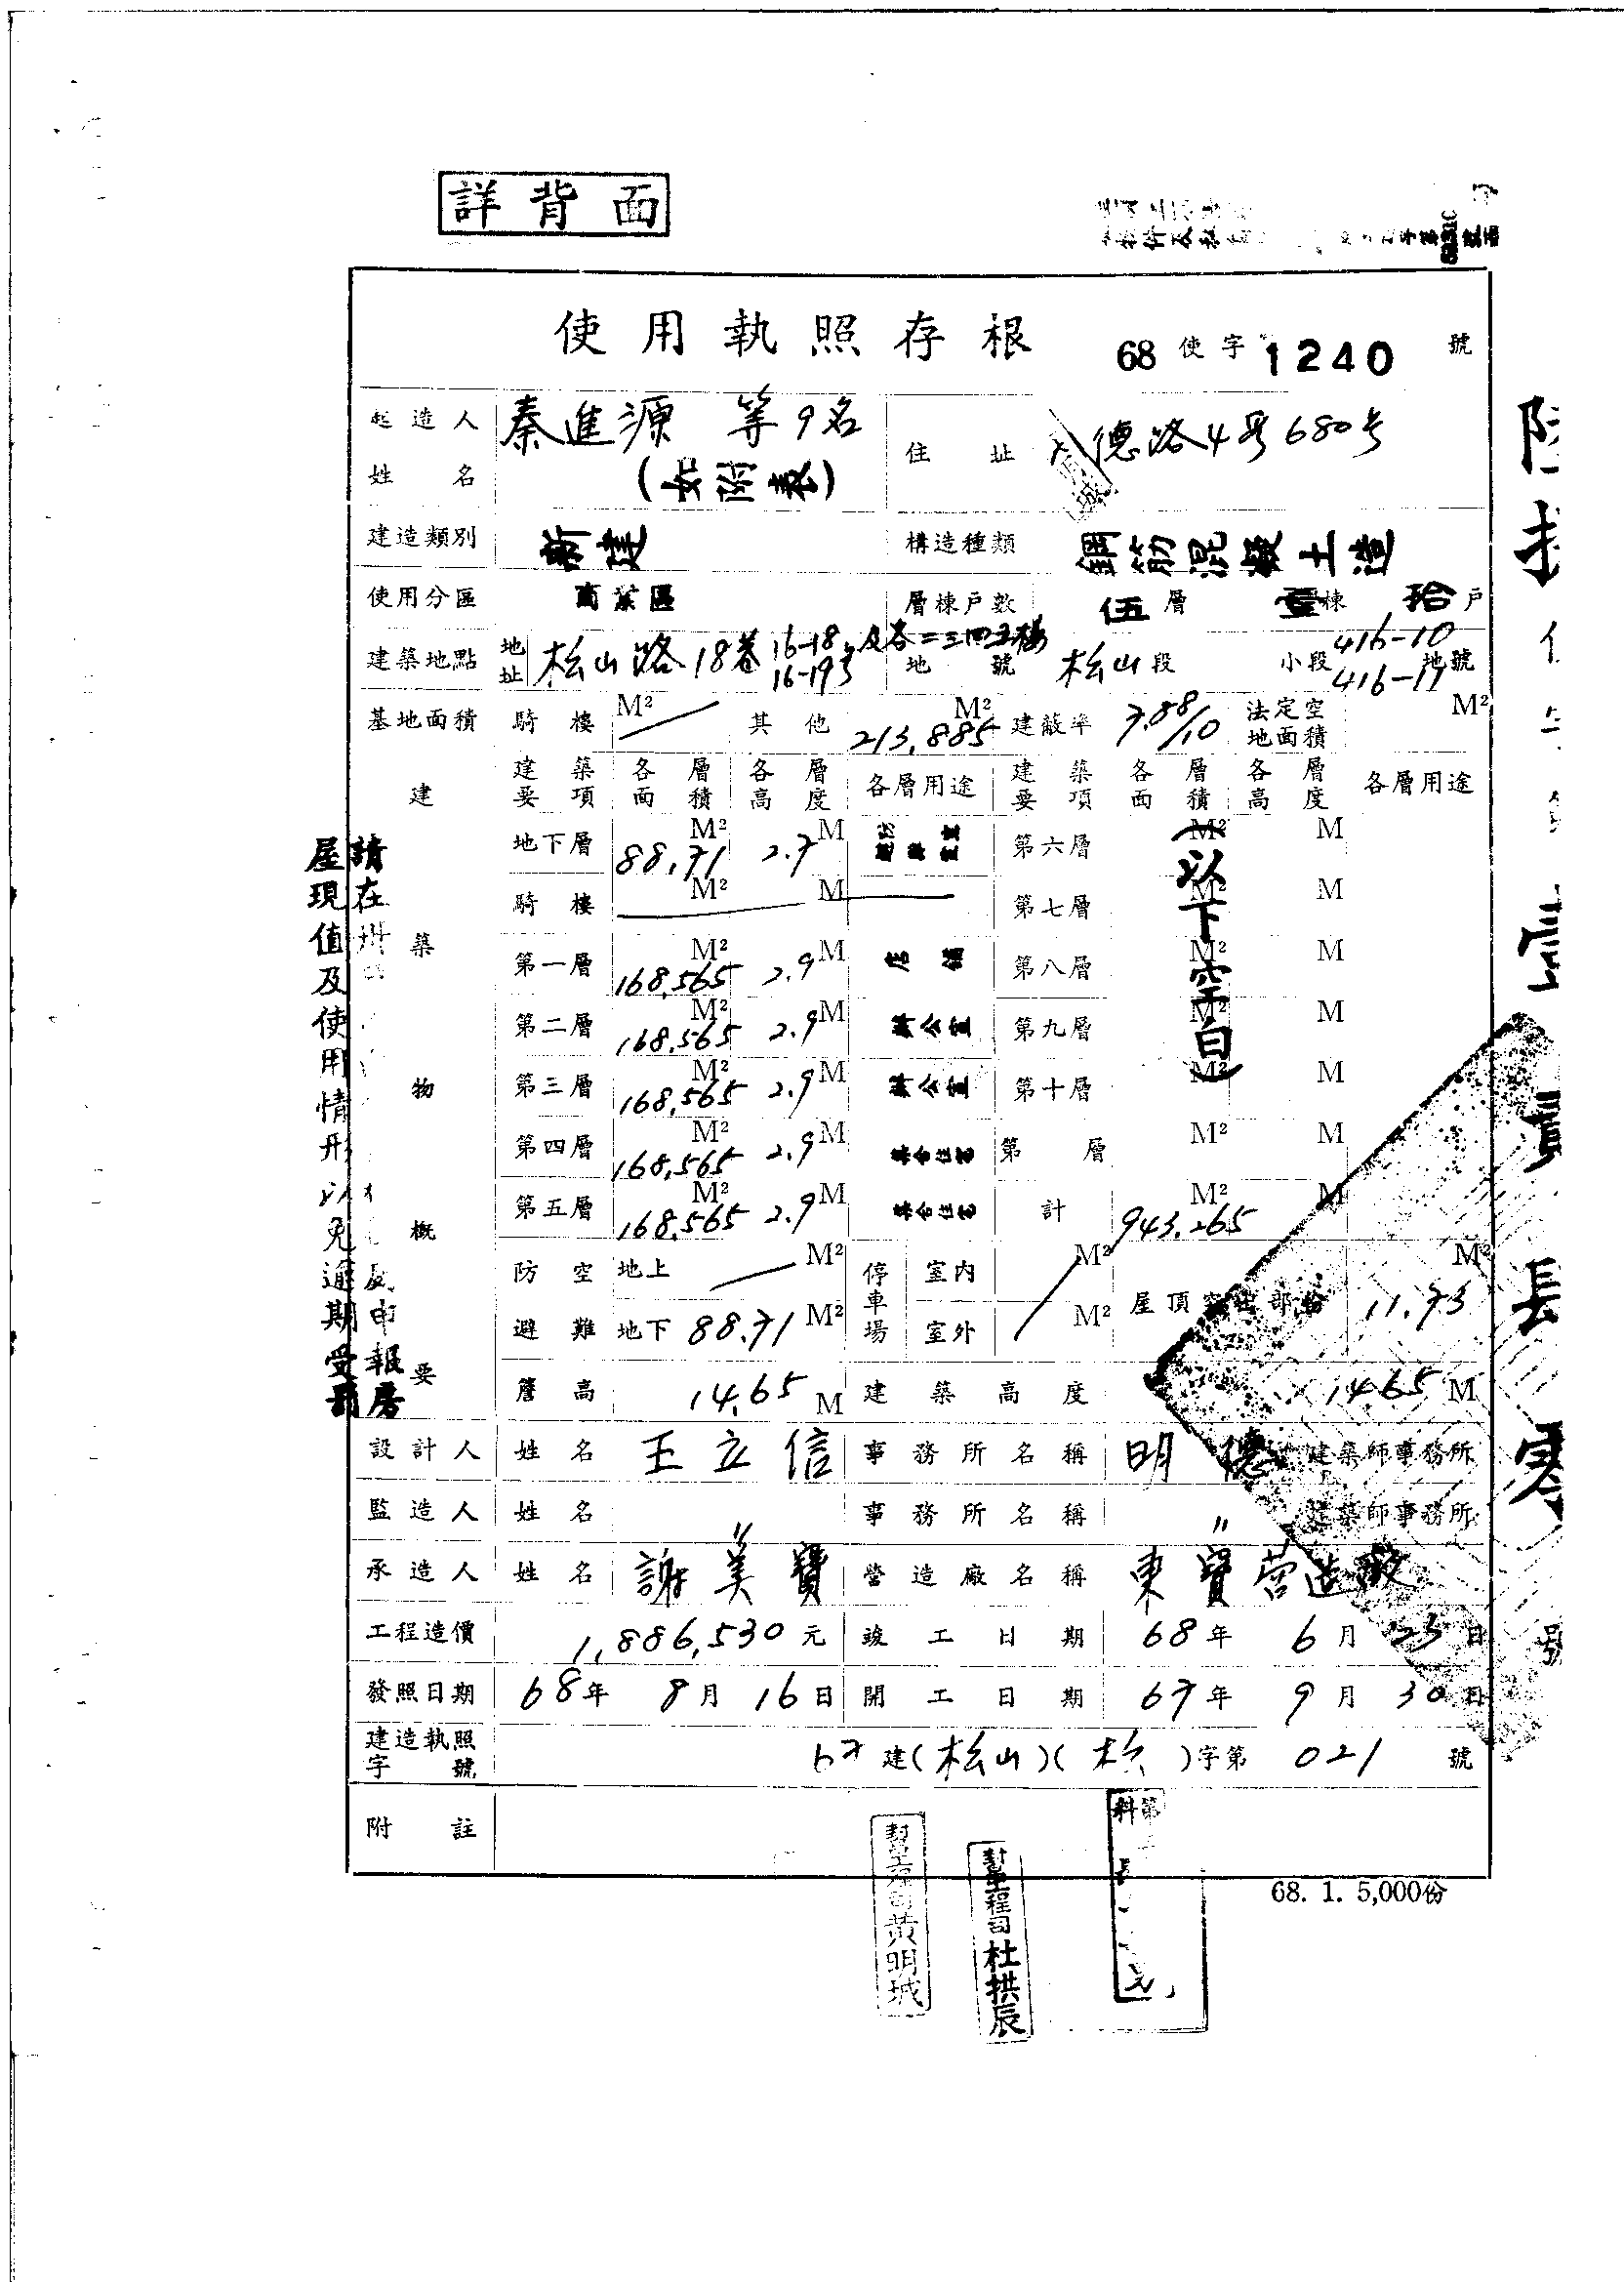 詳背面
使用執照存根 68使字1240號
起造人姓名 秦進源 等9名 (如附表) 住址 德路4段680号
建造類別 新建 構造種類 鋼筋混凝土造
使用分區 商業區 層棟戶數 伍層 壹棟 拾戶
建築地點 地址 松山路18巷16-18 16-19号 及各二三四五樓 地號 松山段 小段 416-10 416-19 地號
基地面積 騎樓 M² 其他 213.885 M² 建蔽率 7.88/10 法定空地面積 M²
建築物概要
建築要項 各層面積 各層高度 各層用途 建築要項 各層面積 各層高度 各層用途
地下層 88.71 M² 2.7 M 第六層 M² M
騎樓 M² M 第七層 M² M
第一層 168.565 M² 2.9 M 店鋪 第八層 M² M
第二層 168.565 M² 2.9 M 辦公室 第九層 M² M
第三層 168.565 M² 2.9 M 辦公室 第十層 M² M
第四層 168.565 M² 2.9 M 集合住宅 第 層 M² M
第五層 168.565 M² 2.9 M 集合住宅 計 943.265 M² M
(以下空白)
防空避難 地上 M² 地下 88.71 M² 停車場 室內 M² 室外 M² 屋頂突出部份 11.73 M²
簷高 14.65 M 建築高度 14.65 M
設計人 姓名 王立信 事務所名稱 明德建築師事務所
監造人 姓名 〃 事務所名稱 〃 建築師事務所
承造人 姓名 謝美寶 營造廠名稱 東寶營造廠
工程造價 1,886,530元 竣工日期 68年6月23日
發照日期 68年8月16日 開工日期 67年9月30日
建造執照字號 67建(松山)(松)字第021號
附註
68. 1. 5,000份
請在
申報房
屋現值及使用情形以免逾期受罰
黃明城
幫工程司杜拱辰